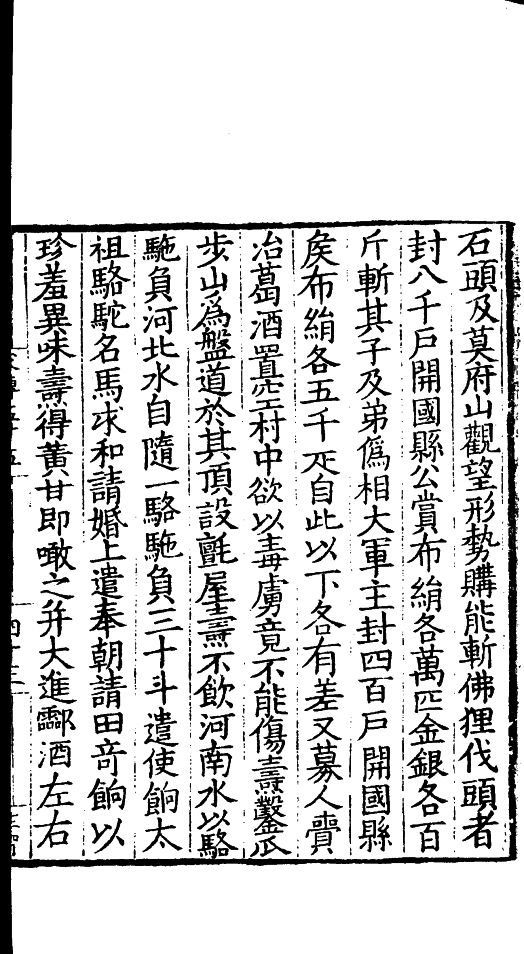 石頭及莫府山觀望形勢購能斬佛狸伐頭者
封八千戶開國縣公賞布絹各萬匹金銀各百
斤斬其子及弟僞相大軍主封四百戶開國縣
矦布絹各五千疋自此以下各有差又募人賷
冶葛酒置空村中欲以毒虜竟不能傷燾鑿瓜
步山爲盤道於其頂設氈屋燾不飲河南水以駱
駞負河北水自隨一駱駞負三十斗遣使餉太
祖駱駝名馬求和請婚上遣奉朝請田竒餉以
珍羞異味燾得黃甘即噉之幷大進酃酒左右